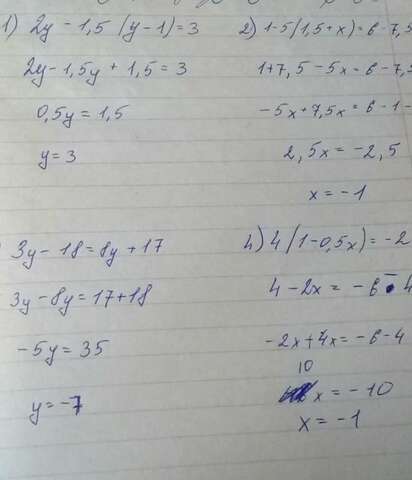 1) 2y - 1,5 (y - 1) = 3
2y - 1,5y + 1,5 = 3
0,5y = 1,5
y = 3
2) 1-5(1,5+x) = 6 - 7,5
1+7,5 - 5x = 6 - 7,5
-5x + 7,5x = 6 - 1 -
2,5x = -2,5
x = -1
3y - 18 = 8y + 17
3y - 8y = 17+18
-5y = 35
y = -7
4) 4 (1 - 0,5x) = -2
4 - 2x = -6 - 4
-2x + 4x = -6 - 4
10
x = -10
x = -1